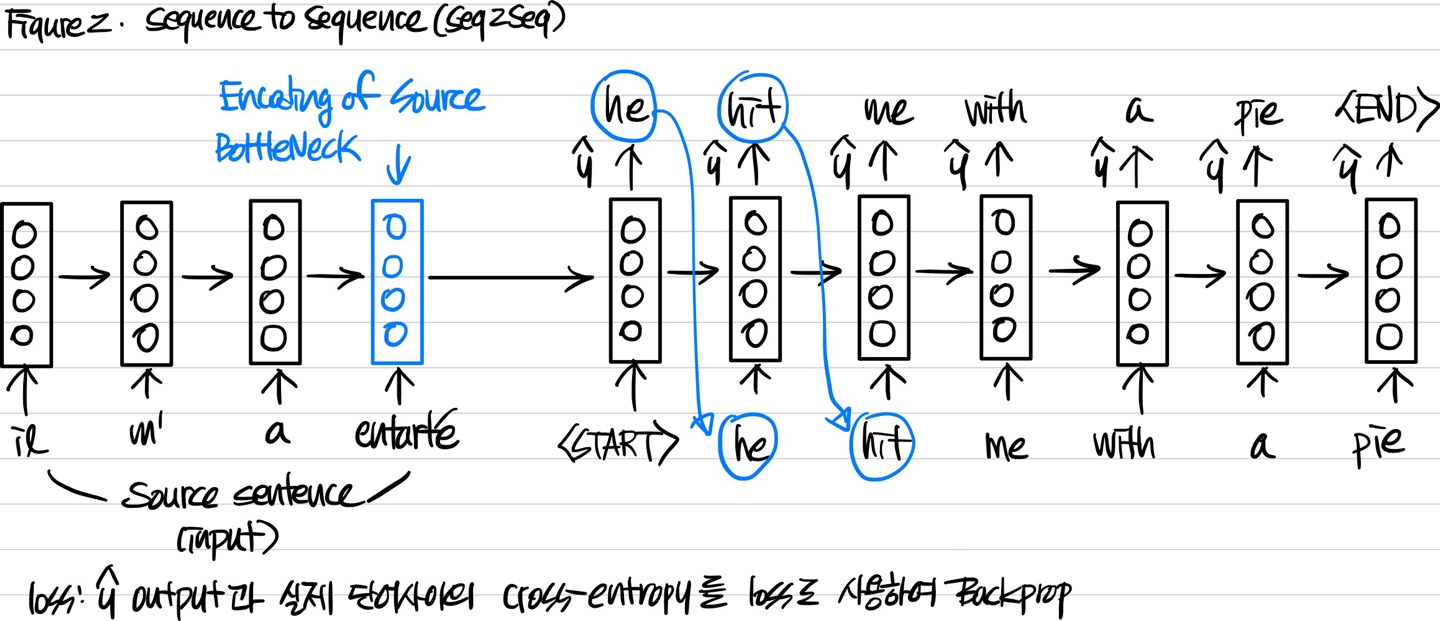 Figure 2. Sequence to Sequence (Seq2Seq)
Encoding of Source
BottleNeck
he hit me with a pie <END>
ŷ ŷ ŷ ŷ ŷ ŷ ŷ
il m' a entarté <START> he hit me with a pie
Source sentence
(input)
loss: ŷ output과 실제 단어사이의 cross-entropy를 loss로 사용하여 Backprop